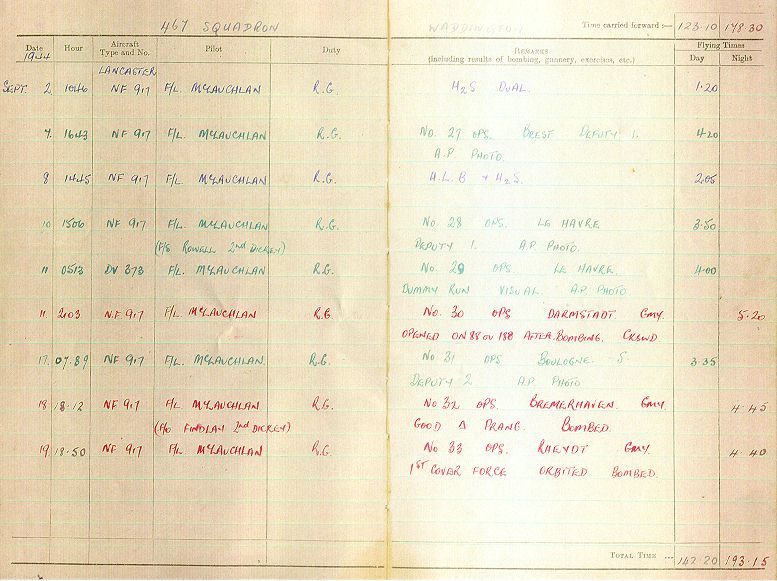 467 SQUADRON WADDINGTON Time carried forward :— 123.10 178.30
Date Hour Aircraft Type and No. Pilot Duty REMARKS (including results of bombing, gunnery, exercises, etc.) Flying Times Day Night
1944
LANCASTER
SEPT. 2 1046 NF 917 F/L. McLAUCHLAN R.G. H2S DUAL. 1.20
7 1643 NF 917 F/L. McLAUCHLAN R.G. No. 27 OPS. BREST DEPUTY 1. 4.20
A.P PHOTO.
8 1445 NF 917 F/L. McLAUCHLAN R.G. H.L.B + H2S. 2.05
10 1506 NF 917 F/L. McLAUCHLAN R.G. No. 28 OPS. LE HAVRE 3.50
(F/S ROWELL 2nd DICKEY) DEPUTY 1. A.P. PHOTO.
11 0513 DV 373 F/L. McLAUCHLAN R.G. No. 29 OPS. LE HAVRE. 4.00
DUMMY RUN VISUAL. A.P PHOTO
11 2103 NF 917 F/L McLAUCHLAN R.G. No. 30 OPS DARMSTADT GMY. 5.20
OPENED ON 88 OU 188 AFTER BOMBING.
17. NF 917 F/L. McLAUCHLAN. R.G. No 31 OPS BOULOGNE. 5. 3.35
DEPUTY 2 A.P PHOTO
18 18.12 NF 917 F/L McLAUCHLAN R.G. No 32 OPS. BREMERHAVEN. GMY. 4.45
(F/O FINDLAY 2nd DICKEY) GOOD Δ PRANG. BOMBED.
19 18.50 NF 917 F/L McLAUCHLAN R.G. No 33 OPS. RHEYDT GMY. 4.40
1ST COVER FORCE ORBITED BOMBED.
TOTAL TIME ... 142.20 193.15